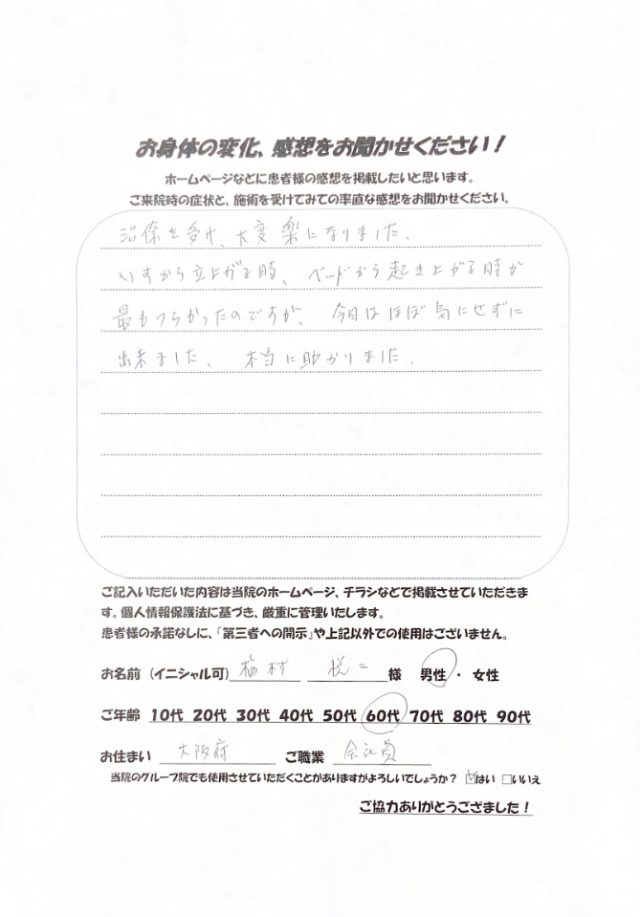 お身体の変化、感想をお聞かせください！
ホームページなどに患者様の感想を掲載したいと思います。
ご来院時の症状と、施術を受けてみての率直な感想をお聞かせください。
治療を受け、大変楽になりました。
いすから立上がる時、ベッドから起き上がる時が
最もつらかったのですが、今日はほぼ気にせずに
出来ました、本当に助かりました。
ご記入いただいた内容は当院のホームページ、チラシなどで掲載させていただきま
す。個人情報保護法に基づき、厳重に管理いたします。
患者様の承諾なしに、「第三者への開示」や上記以外での使用はございません。
お名前（イニシャル可） 梅村 悦二 様 男性 ・ 女性
ご年齢 10代 20代 30代 40代 50代 60代 70代 80代 90代
お住まい 大阪府 ご職業 会社員
当院のグループ院でも使用させていただくことがありますがよろしいでしょうか？ ☑はい □いいえ
ご協力ありがとうござました！